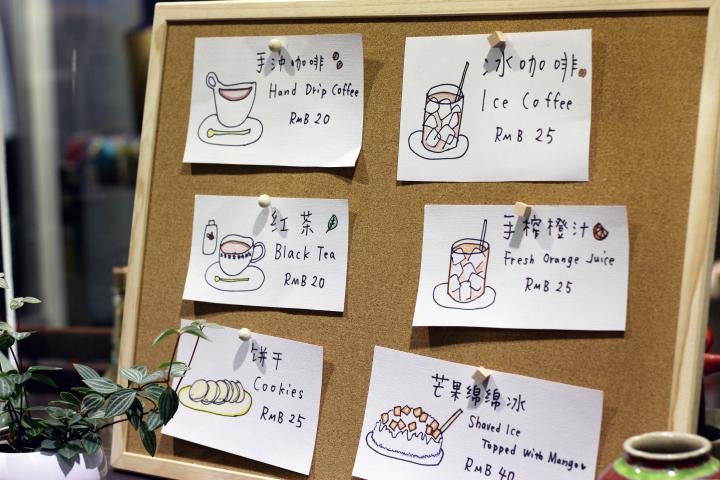 手沖咖啡
Hand Drip Coffee
RMB 20
冰咖啡
Ice Coffee
RMB 25
红茶
Black Tea
RMB 20
手榨橙汁
Fresh Orange Juice
RMB 25
饼干
Cookies
RMB 25
芒果绵绵冰
Shaved Ice
Topped With Mango
RMB 40